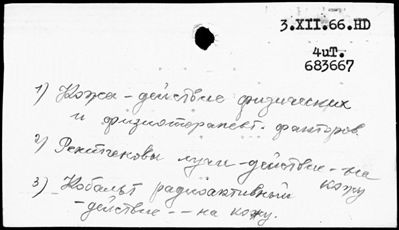 3.XII.66.HD
4иТ.
683667
1) Кожа - действие физических
и физиотерапевт. факторов.
2) Рентгеновы лучи - действие - на
кожу
3) Кобальт радиоактивный
- действие -- на кожу.